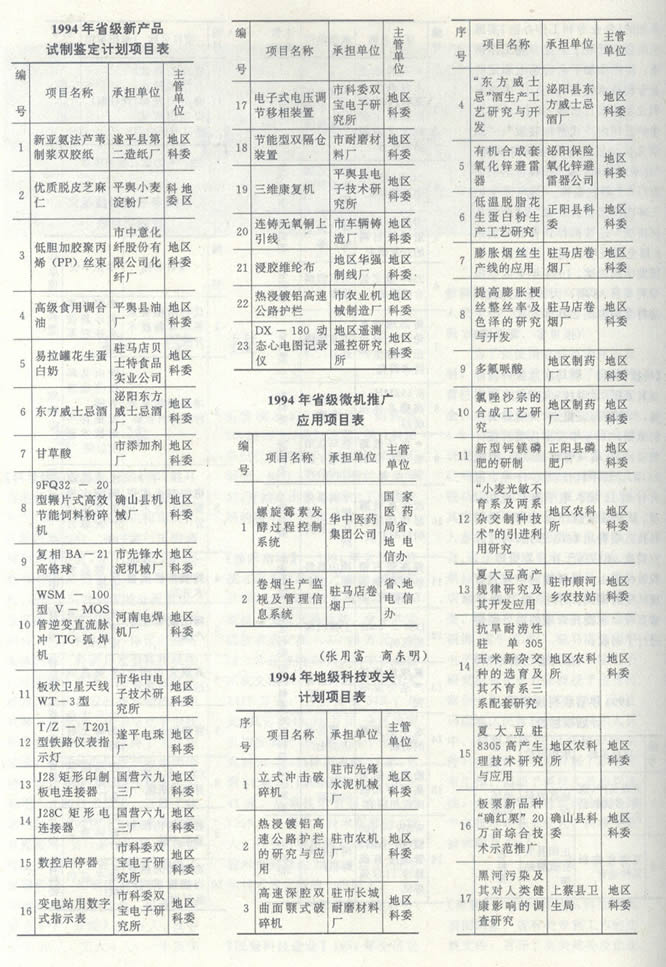 1994年省级新产品
试制鉴定计划项目表
编号 项目名称 承担单位 主管单位
1 新亚氨法芦苇制浆双胶纸 遂平县第二造纸厂 地区科委
2 优质脱皮芝麻仁 平舆小麦淀粉厂 科地委区
3 低胆加胶聚丙烯（PP）丝束 市中意化纤股份有限公司化纤厂 地区科委
4 高级食用调合油 平舆县油厂 地区科委
5 易拉罐花生蛋白奶 驻马店贝士特食品实业公司 地区科委
6 东方威士忌酒 泌阳东方威士忌酒厂 地区科委
7 甘草酸 市添加剂厂 地区科委
8 9FQ32－20型鞭片式高效节能饲料粉碎机 确山县机械厂 地区科委
9 复相BA－21高铬球 市先锋水泥机械厂 地区科委
10 WSM－100型V－MOS管逆变直流脉冲TIG弧焊机 河南电焊机厂 地区科委
11 板状卫星天线WT－3型 市华中电子技术研究所 地区科委
12 T/Z－T201型铁路仪表指示灯 遂平电珠厂 地区科委
13 J28矩形印制板电连接器 国营六九三厂 地区科委
14 J28C矩形电连接器 国营六九三厂 地区科委
15 数控启停器 市科委双宝电子研究所 地区科委
16 变电站用数字式指示表 市科委双宝电子研究所 地区科委
编号 项目名称 承担单位 主管单位
17 电子式电压调节移相装置 市科委双宝电子研究所 地区科委
18 节能型双隔仓装置 市耐磨材料厂 地区科委
19 三维康复机 平舆县电子技术研究所 地区科委
20 连铸无氧铜上引线 市车辆铸造厂 地区科委
21 浸胶维纶布 地区华强制线厂 地区科委
22 热浸镀铝高速公路护栏 市农业机械制造厂 地区科委
23 DX－180动态心电图记录仪 地区遥测遥控研究所 地区科委
1994年省级微机推广
应用项目表
编号 项目名称 承担单位 主管单位
1 螺旋霉素发酵过程控制系统 华中医药集团公司 国家医药局省、地电信办
2 卷烟生产监视及管理信息系统 驻马店卷烟厂 省、地电信办
（张用富 商东明）
1994年地级科技攻关
计划项目表
序号 项目名称 承担单位 主管单位
1 立式冲击破碎机 驻市先锋水泥机械厂 地区科委
2 热浸镀铝高速公路护栏的研究与应用 驻市农机厂 地区科委
3 高速深腔双曲面颚式破碎机 驻市长城耐磨材料厂 地区科委
序号 项目名称 承担单位 主管单位
4 “东方威士忌”酒生产工艺研究与开发 泌阳县东方威士忌酒厂 地区科委
5 有机合成套氧化锌避雷器 泌阳保险氧化锌避雷器公司 地区科委
6 低温脱脂花生蛋白粉生产工艺研究 正阳县科委 地区科委
7 膨胀烟丝生产线的应用 驻马店卷烟厂 地区科委
8 提高膨胀梗丝整丝率及色泽的研究与开发 驻马店卷烟厂 地区科委
9 多氟哌酸 地区制药厂 地区科委
10 氯唑沙宗的合成工艺研究 地区制药厂 地区科委
11 新型钙镁磷肥的研制 正阳县磷肥厂 地区科委
12 “小麦光敏不育系及两系杂交制种技术”的引进利用研究 地区农科所 地区科委
13 夏大豆高产规律研究及其开发应用 驻市顺河乡农技站 地区科委
14 抗旱耐涝性驻单305玉米新杂交种的选育及其不育系三系配套研究 地区农科所 地区科委
15 夏大豆驻8305高产生理技术研究与应用 地区农科所 地区科委
16 板栗新品种“确红栗”20万亩综合技术示范推广 确山县科委 地区科委
17 黑河污染及其对人类健康影响的调查研究 上蔡县卫生局 地区科委